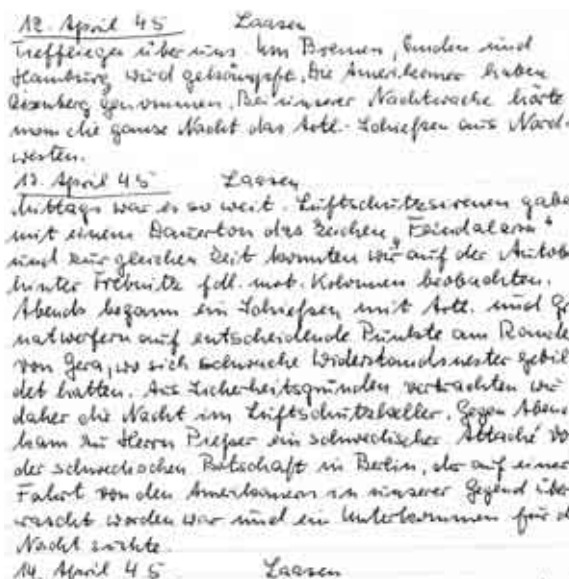 12. April 45 Laasen
Tiefflieger über uns. Um Bremen, Emden und
Hamburg wird gekämpft. Die Amerikaner haben
Eisenberg genommen. Bei unserer Nachtwache hörte
man die ganze Nacht das Artl.-Schießen aus Nord-
westen.
13. April 45 Laasen
Mittags war es so weit. Luftschutzsirenen gabe
mit einem Dauerton das Zeichen „Feindalarm“
und zur gleichen Zeit konnten wir auf der Autob
hinter Trebnitz fdl. mot. Kolonnen beobachten.
Abends begann ein Schießen mit Artl. und Gr
natwerfern auf entscheidende Punkte am Rande
von Gera, wo sich schwache Widerstandsnester gebil
det hatten. Aus Sicherheitsgründen verbrachten wir
daher die Nacht im Luftschutzkeller. Gegen Aben
kam zu Herrn ein schwedischer Attaché vo
der schwedischen Botschaft in Berlin, der auf einer
Fahrt von den Amerikanern in unserer Gegend über
rascht worden war und ein Unterkommen für d
Nacht suchte.
14. April 45 Laasen